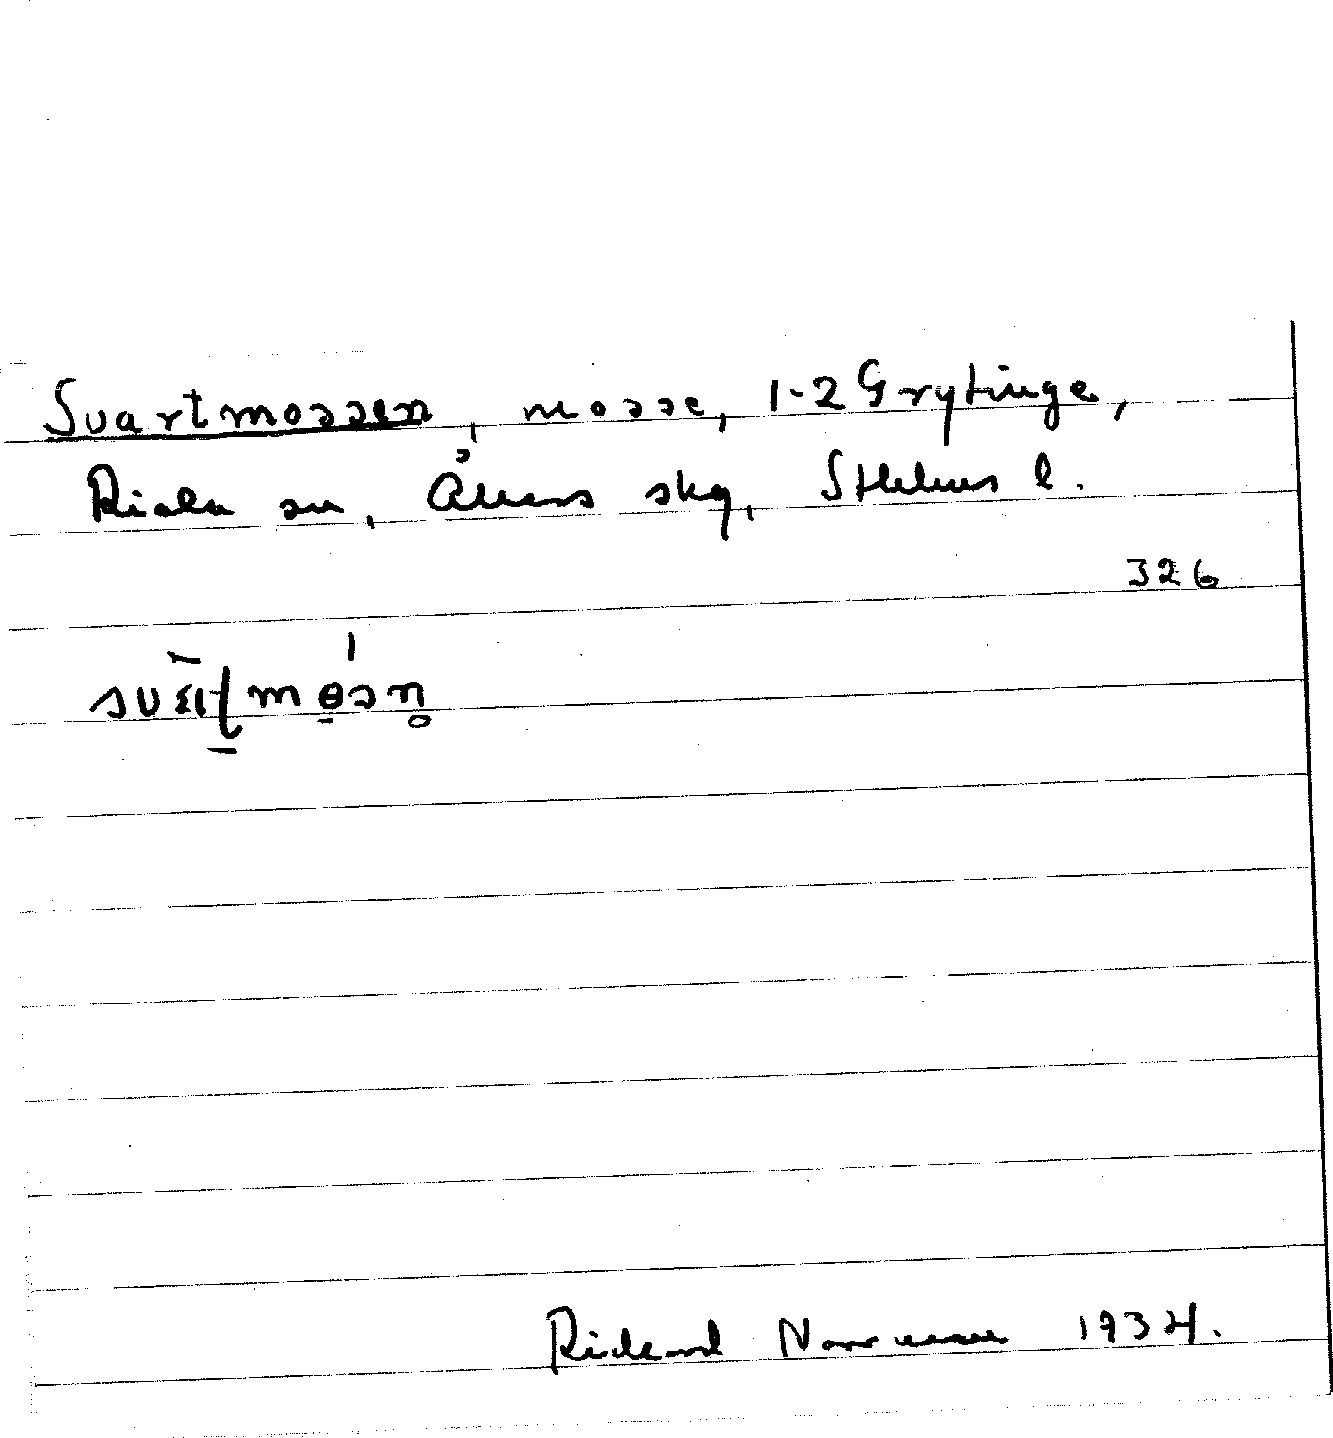 Svartmossen, mosse, 1-2 Grytinge,
Riala sn, Åkers skg, Sthlms l.
326
Rickard Norrman 1934.